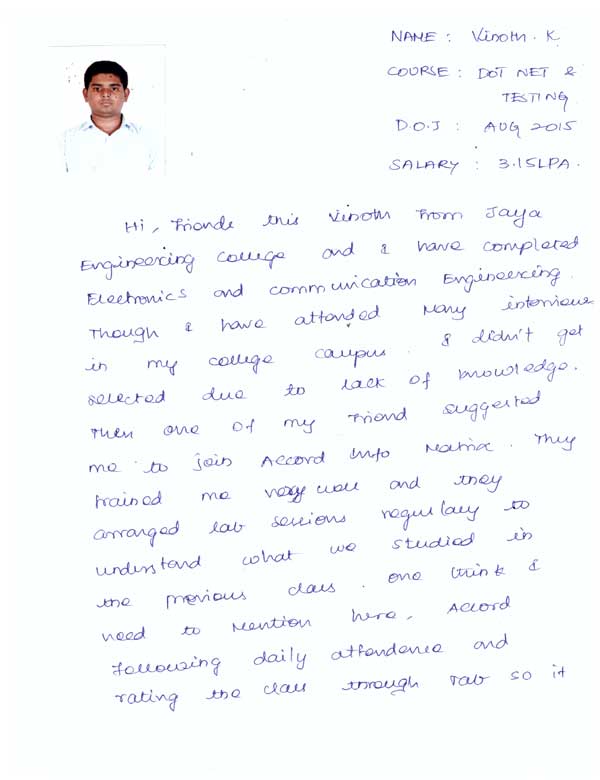 NAME : Vinoth . K
COURSE : DOT NET &
TESTING
D.O.J : AUG 2015
SALARY : 3.15LPA.
Hi, Friends this Vinoth From Jaya
Engineering college and I have completed
Electronics and communication Engineering.
Though I have attended Many interviews
in my college campus. I didn't get
selected due to lack of knowledge.
Then one of my Friend suggested
me to join Accord Info Matrix. They
trained me very well and they
arranged lab sessions regulary to
understand what we studied in
the previous class. one think I
need to Mention here, Accord
Following daily attendence and
rating the class through Tab so it